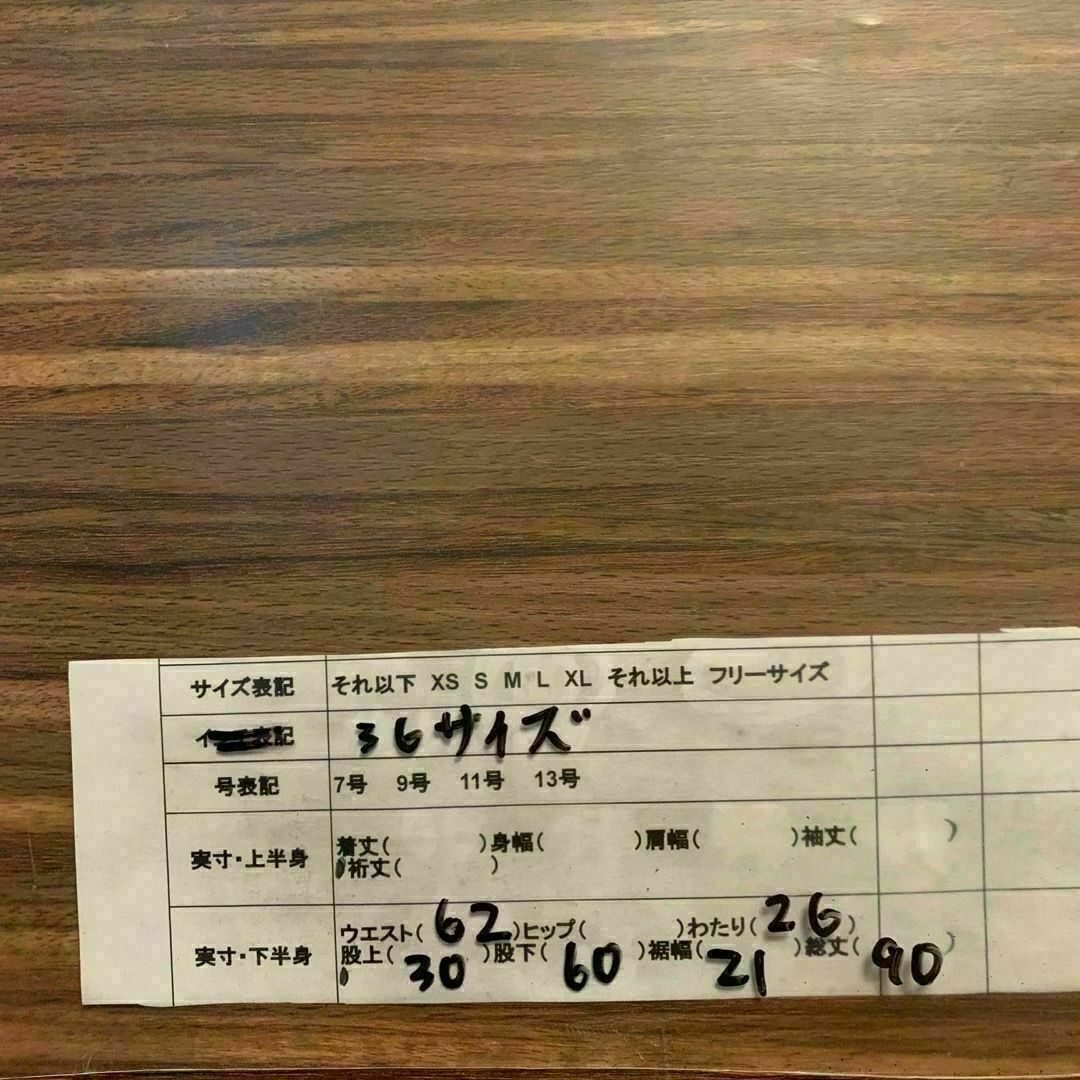 サイズ表記 それ以下 XS S M L XL それ以上 フリーサイズ
表記 36サイズ
号表記 7号 9号 11号 13号
実寸・上半身 着丈( )身幅( )肩幅( )袖丈( )
裄丈( )
実寸・下半身 ウエスト(62)ヒップ( )わたり(26)
股上(30)股下(60)裾幅(21)総丈(90)